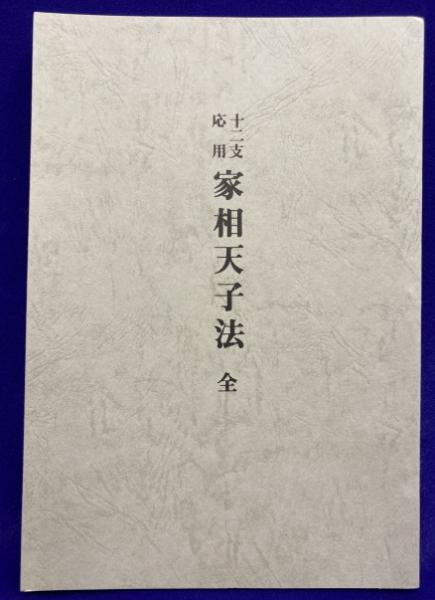 十二支
応用
家相天子法 全